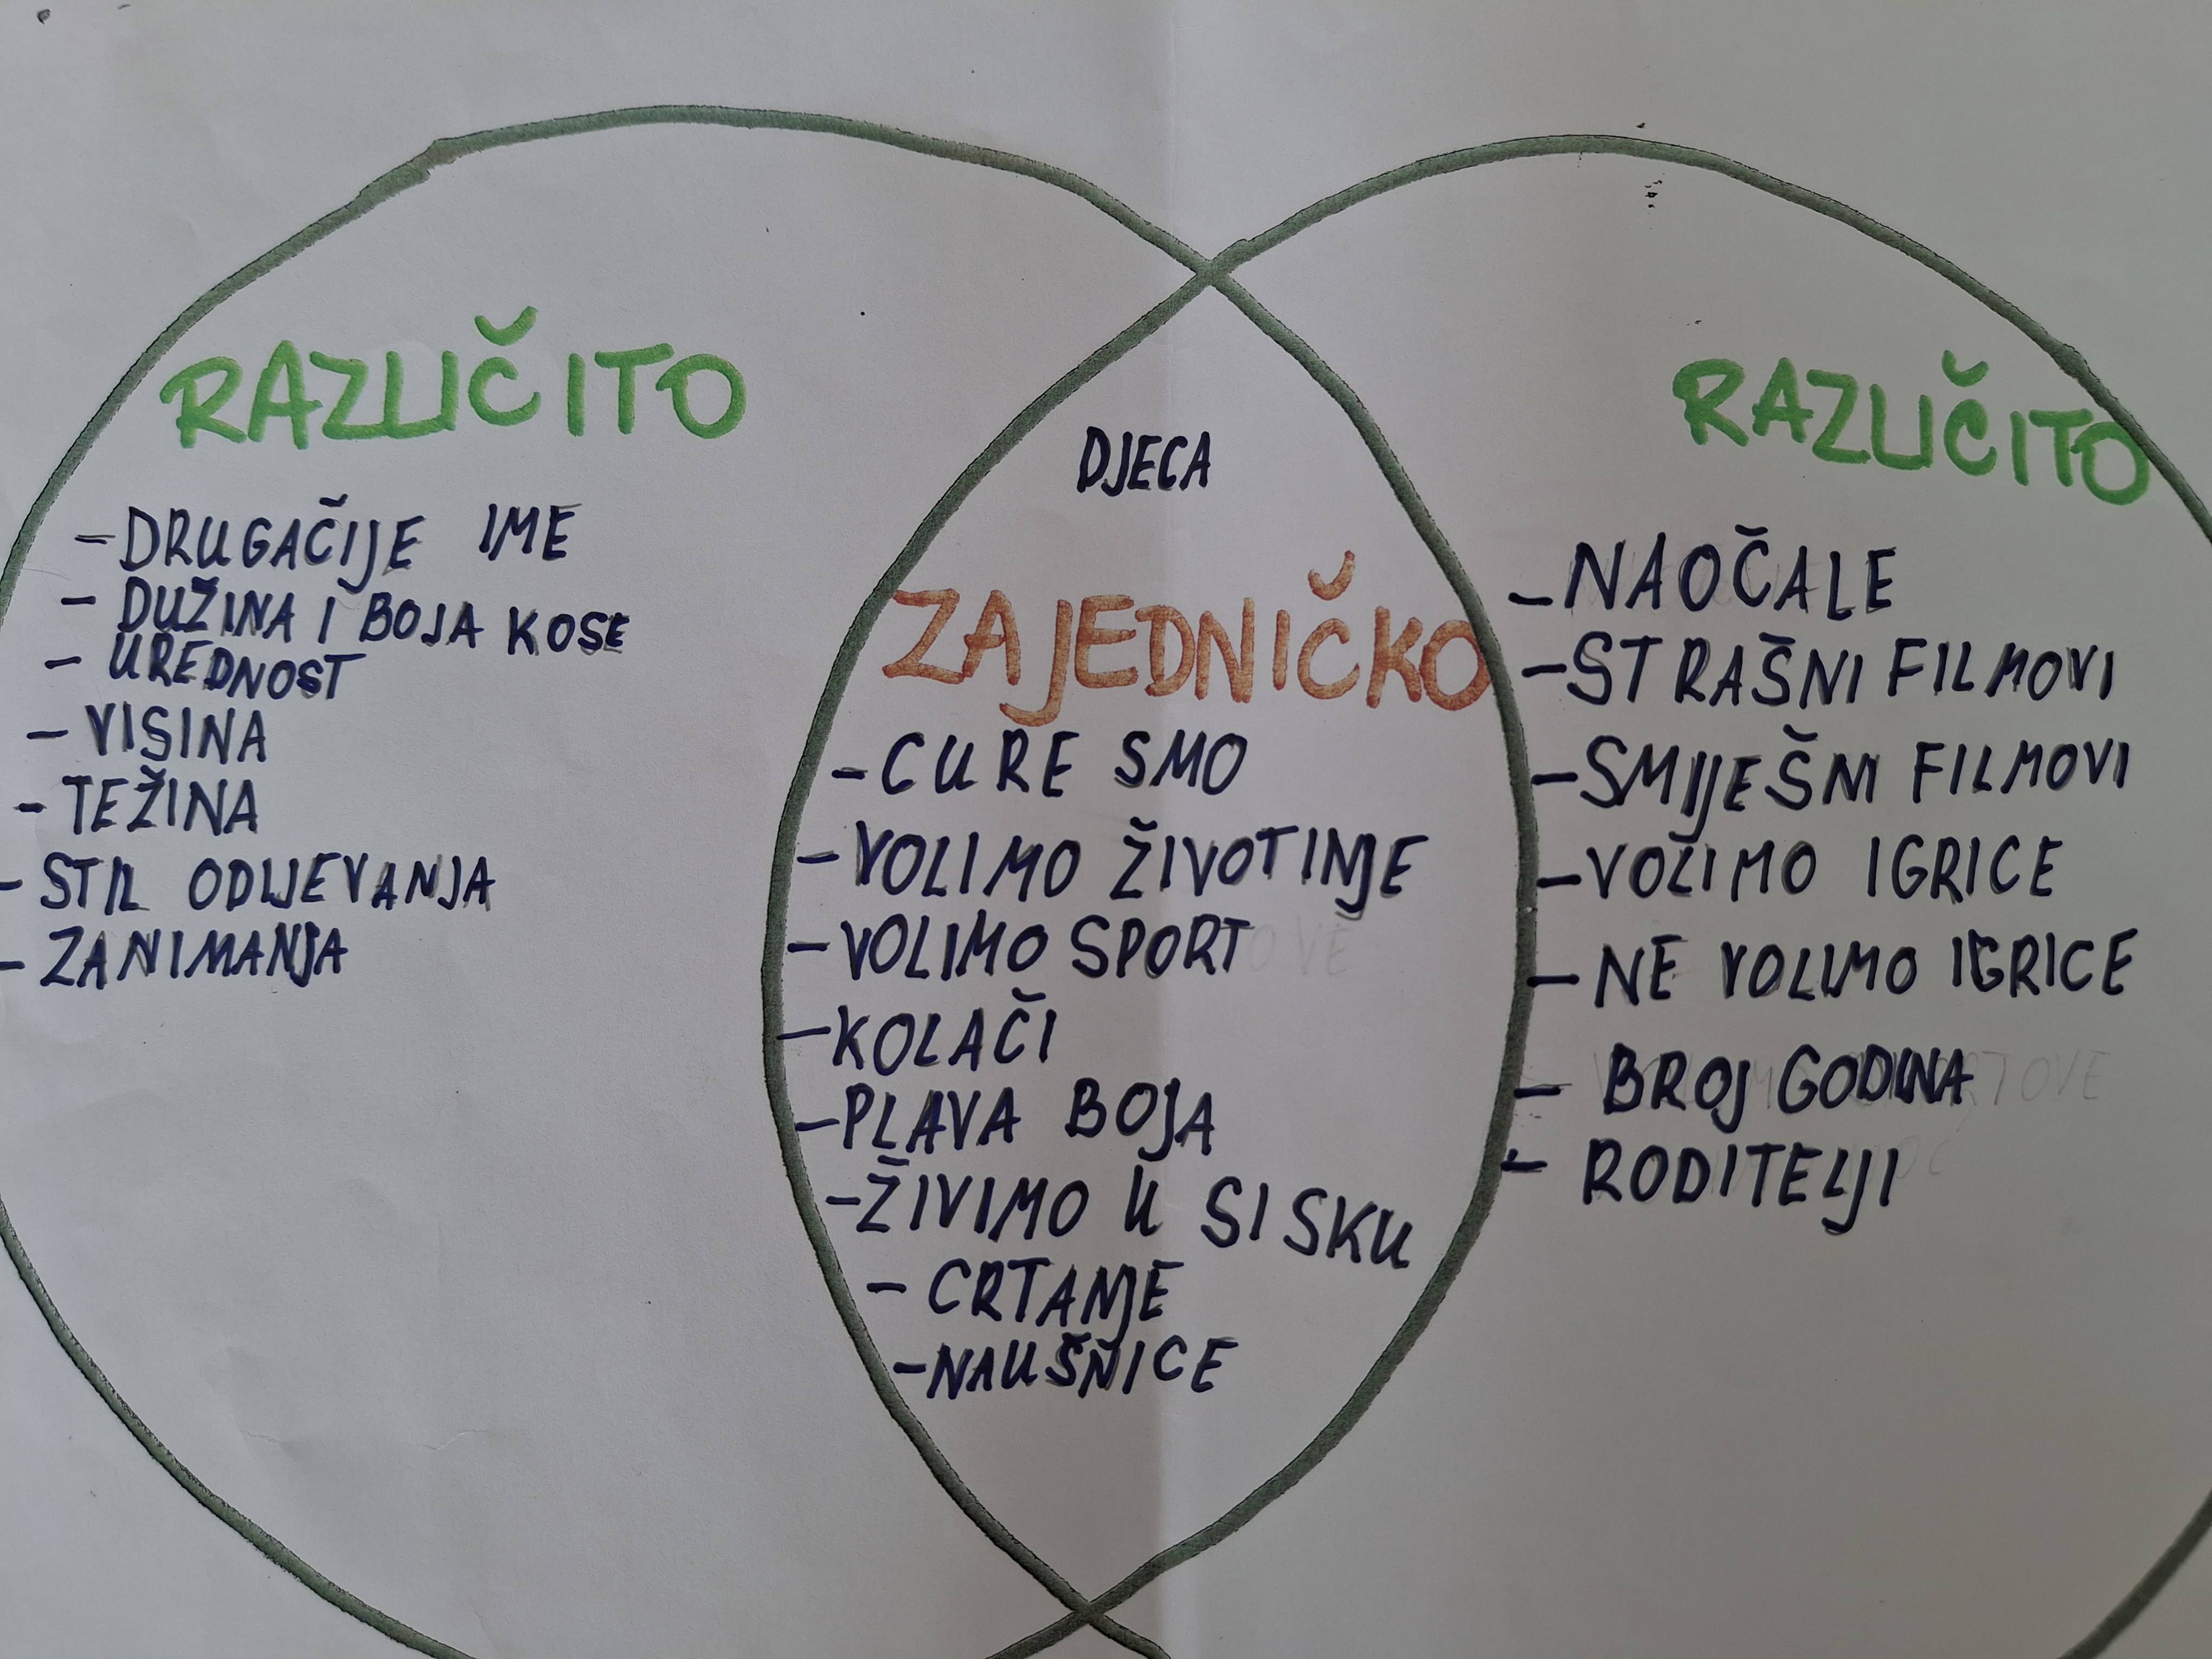 RAZLIČITO
- DRUGAČIJE IME
- DUŽINA I BOJA KOSE
- UREDNOST
- VISINA
- TEŽINA
- STIL ODIJEVANJA
- ZANIMANJA
DJECA
ZAJEDNIČKO
- CURE SMO
- VOLIMO ŽIVOTINJE
- VOLIMO SPORT
- KOLAČI
- PLAVA BOJA
- ŽIVIMO U SISKU
- CRTANJE
- NAUŠNICE
RAZLIČITO
- NAOČALE
- STRAŠNI FILMOVI
- SMIJEŠNI FILMOVI
- VOLIMO IGRICE
- NE VOLIMO IGRICE
- BROJ GODINA
- RODITELJI